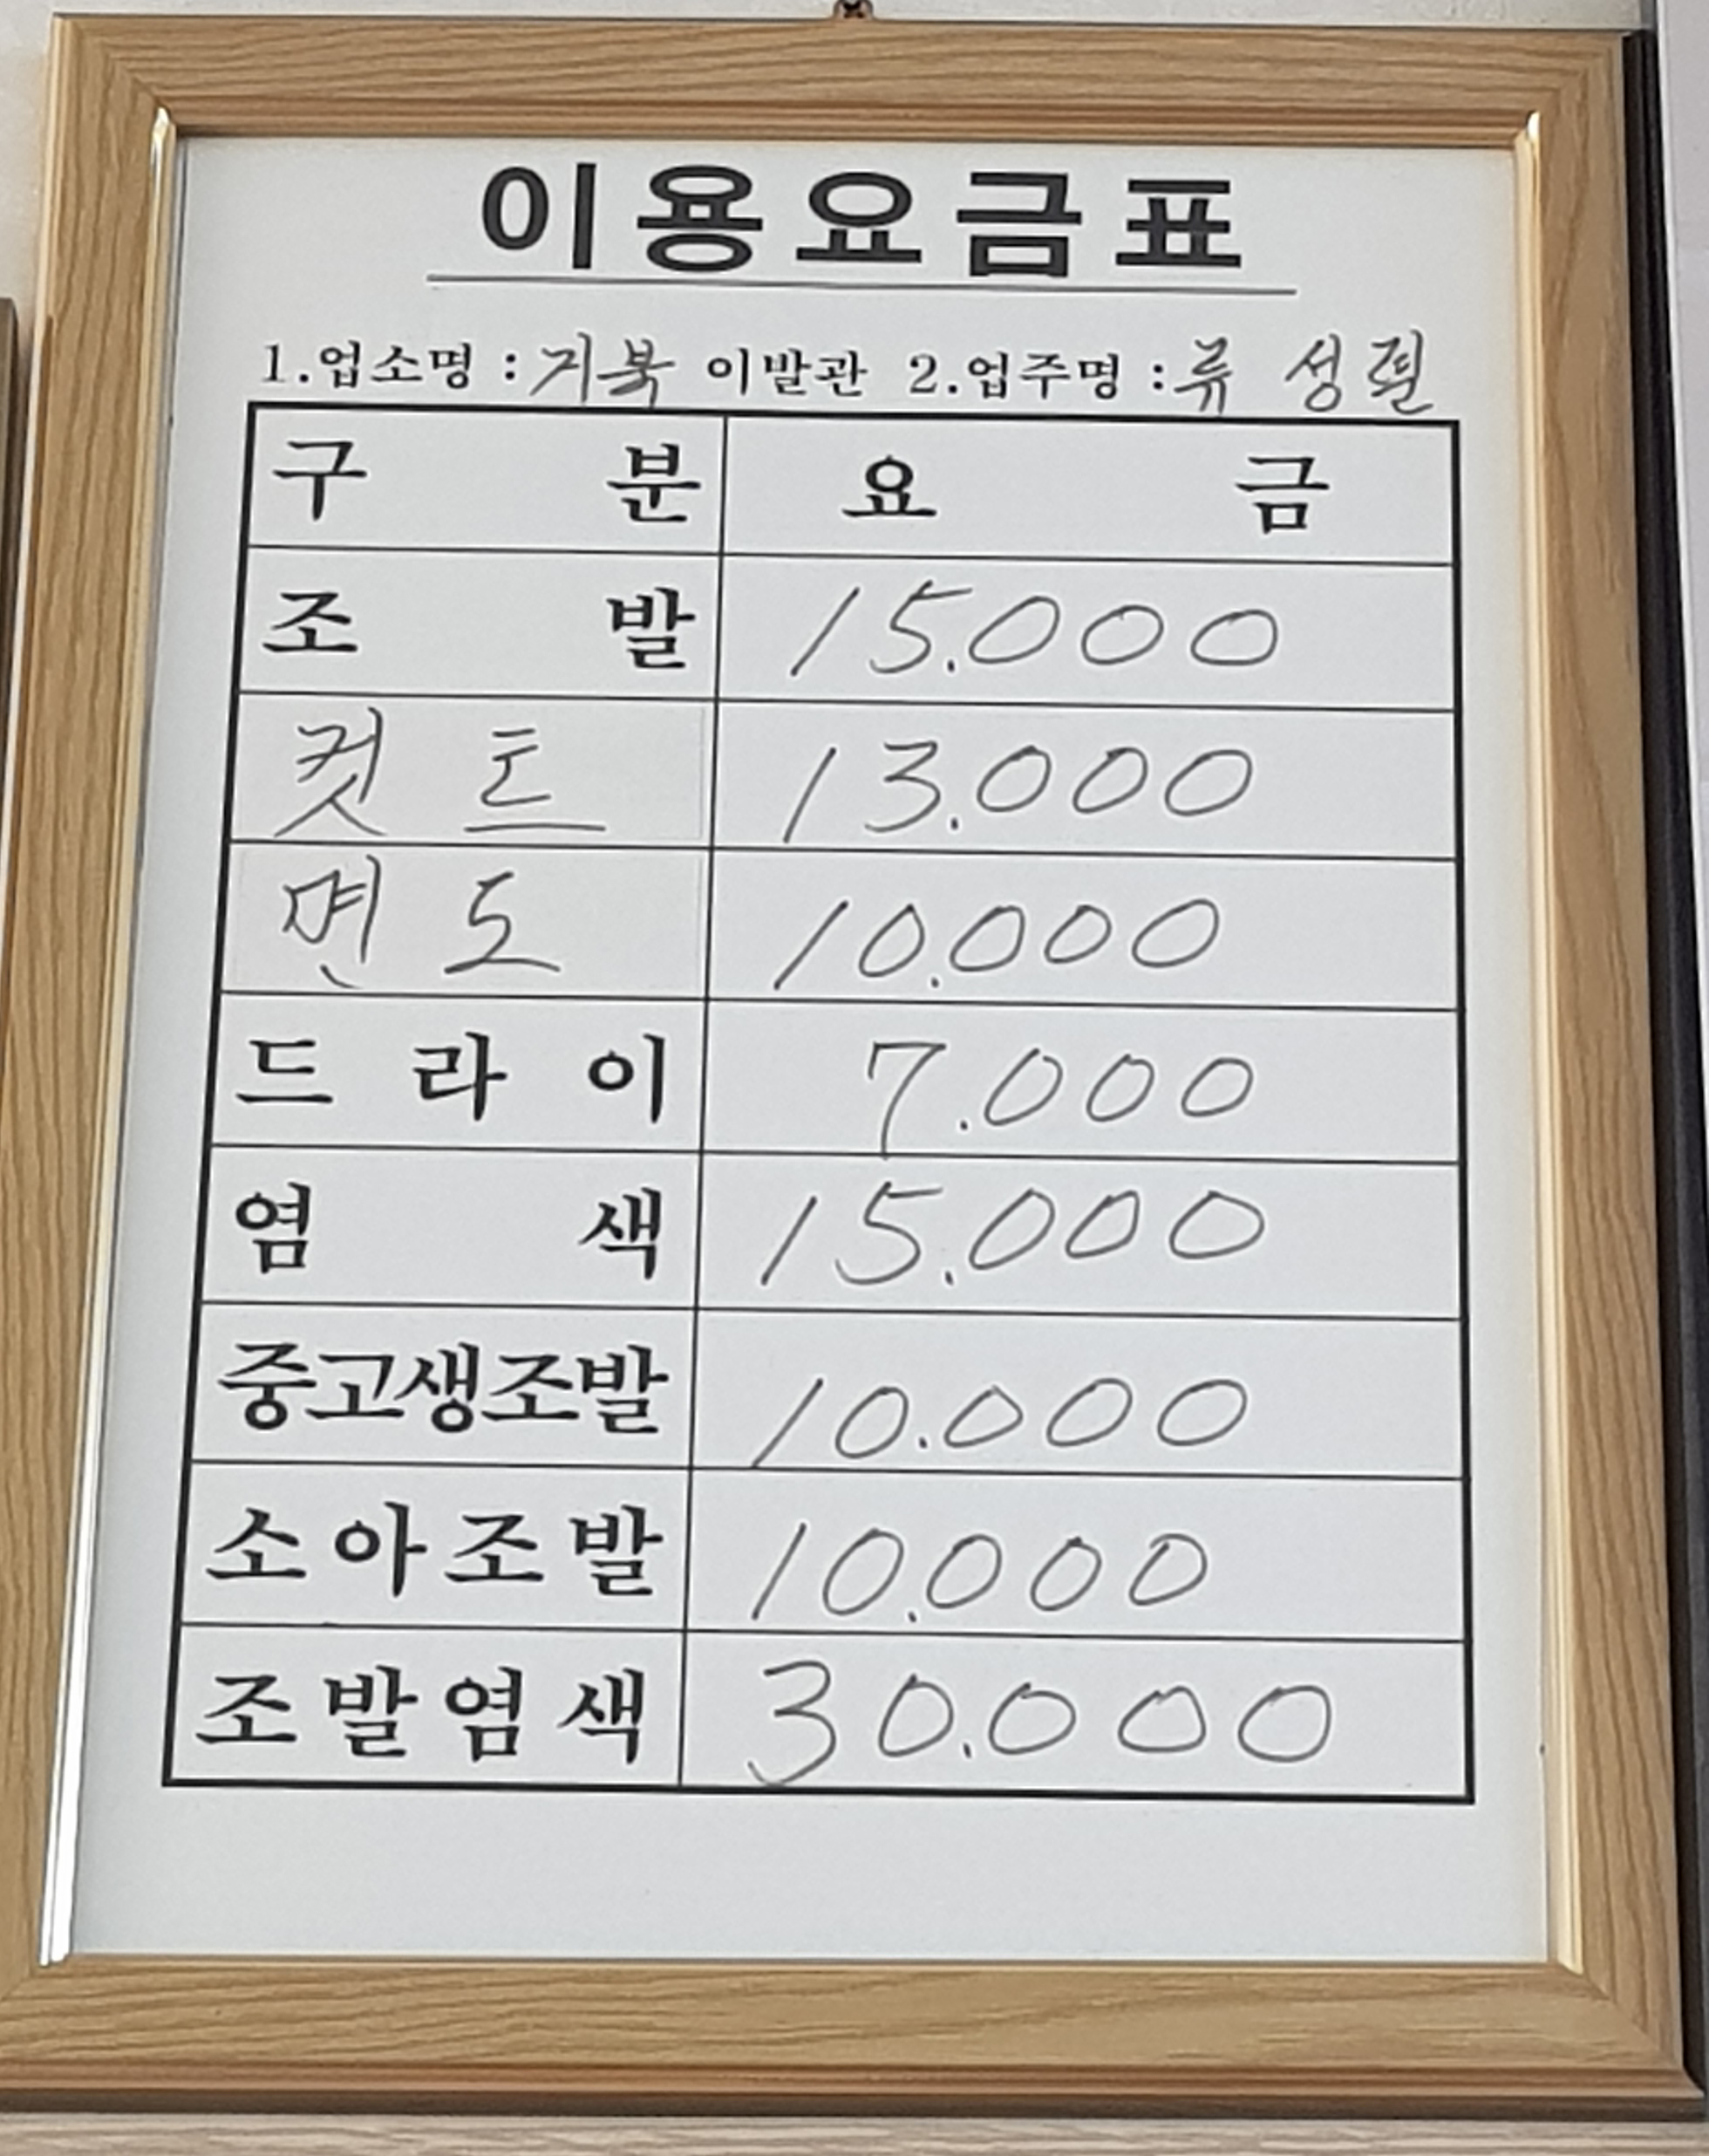 이용요금표
1.업소명 : 거북 이발관 2.업주명 : 류 성렬
구 분 요 금
조 발 15.000
컷 트 13.000
면 도 10.000
드 라 이 7.000
염 색 15.000
중고생조발 10.000
소아조발 10.000
조발염색 30.000